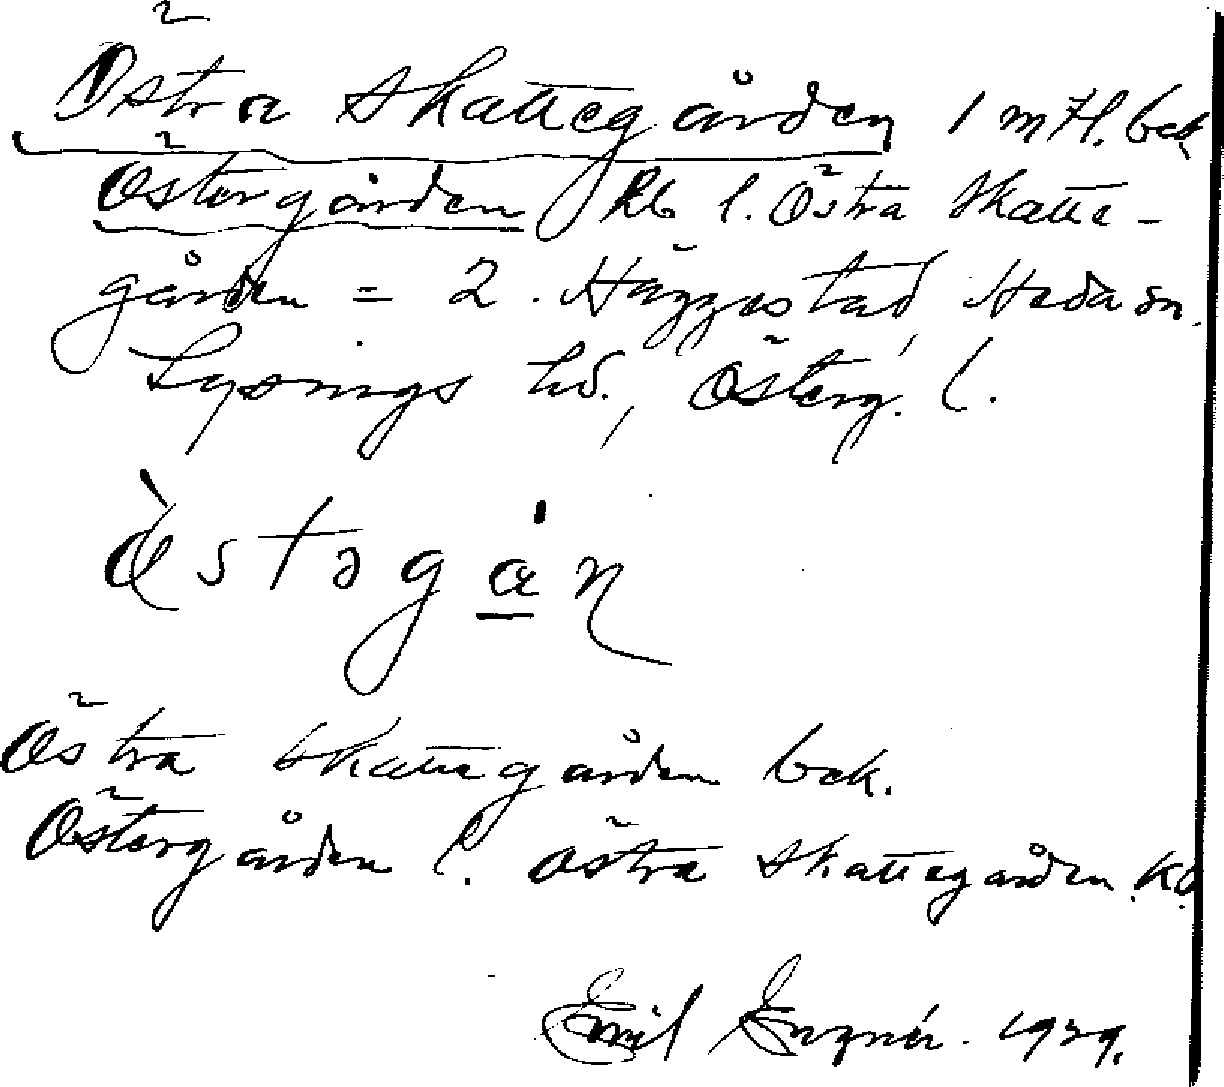 Östra Skattegården 1 mtl. bek.
Östergården Kb l. Östra Skatte-
gården = 2. Häggestad, Heda sn.
Lysings hd., Österg. l.
òstəgá̱ṇ
Östra Skattegården bek.
Östergården l. östra skattegården Kb.
Emil 1929.